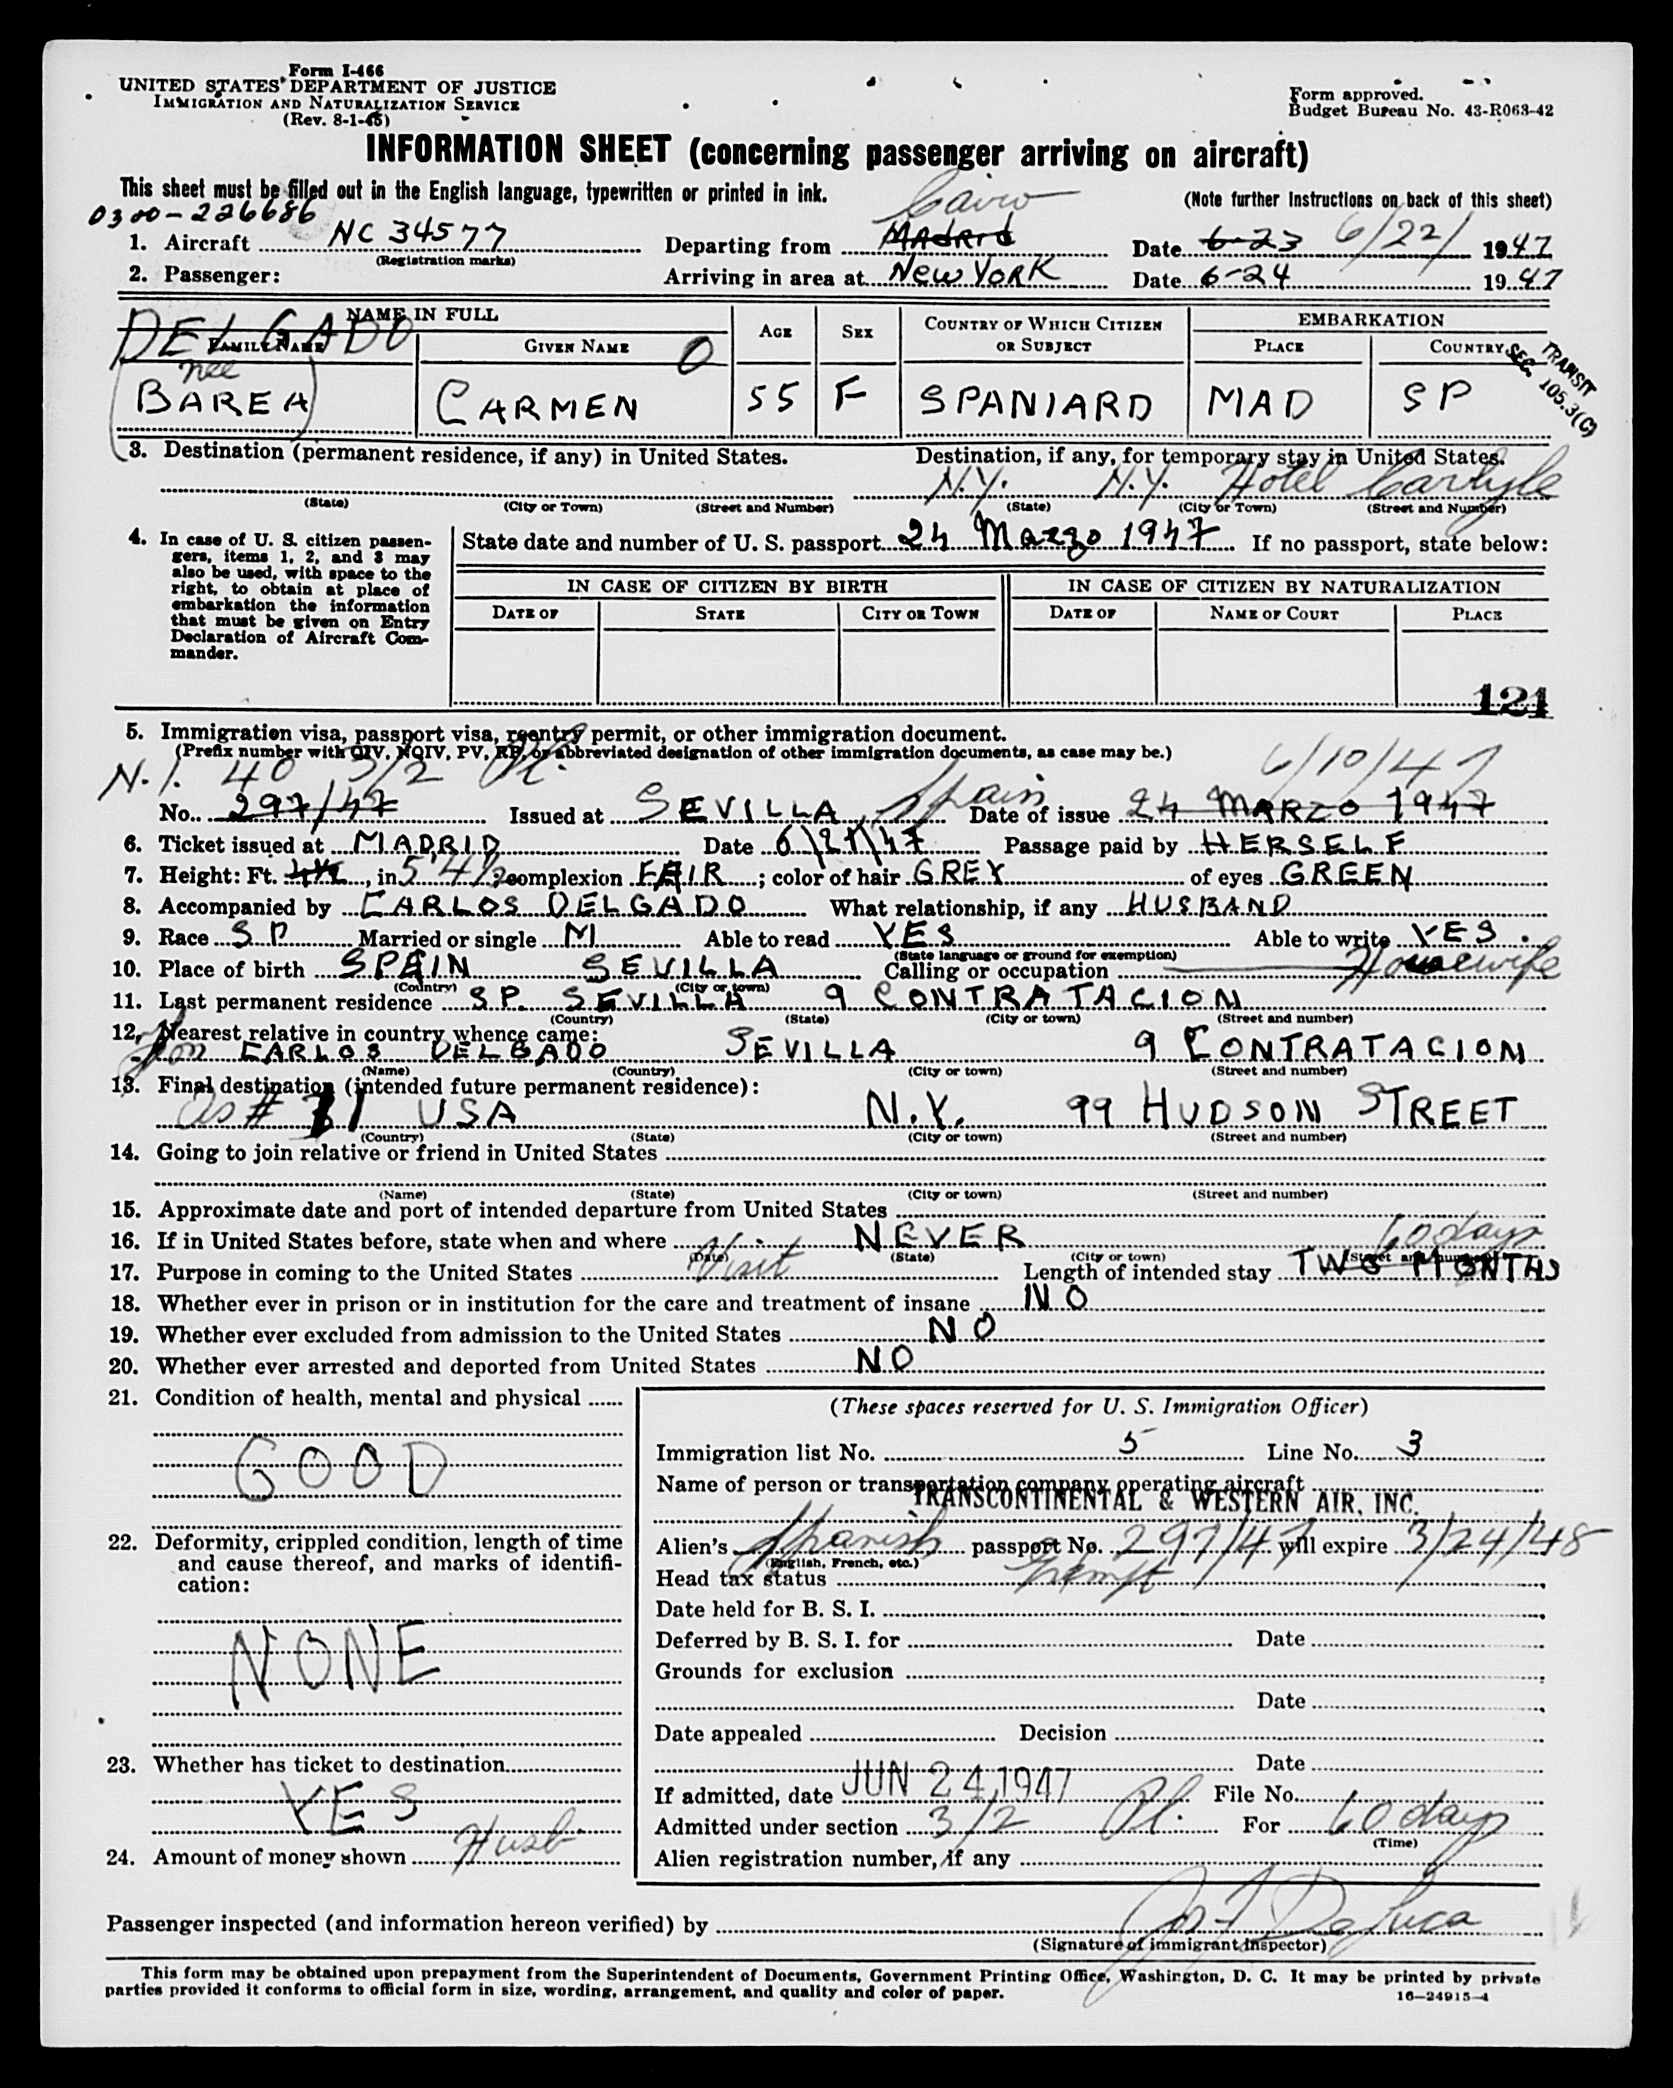 Form I-466
UNITED STATES DEPARTMENT OF JUSTICE
IMMIGRATION AND NATURALIZATION SERVICE
(Rev. 8-1-45)
Form approved.
Budget Bureau No. 43-R063-42
INFORMATION SHEET (concerning passenger arriving on aircraft)
This sheet must be filled out in the English language, typewritten or printed in ink.
(Note further instructions on back of this sheet)
0300-226686
Cairo
1. Aircraft NC 34577 Departing from Madrid Date 6-23 6/22/ 1947
(Registration marks)
2. Passenger: Arriving in area at New York Date 6-24 1947
NAME IN FULL AGE SEX COUNTRY OF WHICH CITIZEN OR SUBJECT EMBARKATION
FAMILY NAME GIVEN NAME PLACE COUNTRY
DELGADO O
TRANSIT
SEC. 105.3(C)
(nee
BAREA) CARMEN 55 F SPANIARD MAD SP
3. Destination (permanent residence, if any) in United States. Destination, if any, for temporary stay in United States.
N.Y. N.Y. Hotel Carlyle
(State) (City or Town) (Street and Number) (State) (City or Town) (Street and Number)
4. In case of U. S. citizen passen-
gers, items 1, 2, and 3 may
also be used, with space to the
right, to obtain at place of
embarkation the information
that must be given on Entry
Declaration of Aircraft Com-
mander.
State date and number of U. S. passport 24 Marzo 1947 If no passport, state below:
IN CASE OF CITIZEN BY BIRTH IN CASE OF CITIZEN BY NATURALIZATION
DATE OF STATE CITY OR TOWN DATE OF NAME OF COURT PLACE
121
5. Immigration visa, passport visa, reentry permit, or other immigration document.
(Prefix number with QIV, NQIV, PV, RP, or abbreviated designation of other immigration documents, as case may be.)
N.I. 40 3/2 Pl. 6/10/47
No. 297/47 Issued at SEVILLA, Spain Date of issue 24 MARZO 1947
6. Ticket issued at MADRID Date 6/21/47 Passage paid by HERSELF
7. Height: Ft. , in 5' 4 1/2 complexion FAIR; color of hair GREY of eyes GREEN
8. Accompanied by CARLOS DELGADO What relationship, if any HUSBAND
9. Race SP Married or single M Able to read YES Able to write YES
(State language or ground for exemption)
10. Place of birth SPAIN SEVILLA Calling or occupation Housewife
(Country) (City or town)
11. Last permanent residence SP. SEVILLA 9 CONTRATACION
(Country) (State) (City or town) (Street and number)
12. Nearest relative in country whence came:
Son CARLOS DELGADO SEVILLA 9 CONTRATACION
(Name) (Country) (City or town) (Street and number)
13. Final destination (intended future permanent residence):
as # 11 USA N.Y. 99 HUDSON STREET
(Country) (State) (City or town) (Street and number)
14. Going to join relative or friend in United States
(Name) (State) (City or town) (Street and number)
15. Approximate date and port of intended departure from United States
16. If in United States before, state when and where NEVER 60 days
(Date) (State) (City or town) (Street and number)
17. Purpose in coming to the United States Visit Length of intended stay TWO MONTHS
18. Whether ever in prison or in institution for the care and treatment of insane NO
19. Whether ever excluded from admission to the United States NO
20. Whether ever arrested and deported from United States NO
21. Condition of health, mental and physical
GOOD
22. Deformity, crippled condition, length of time
and cause thereof, and marks of identifi-
cation:
NONE
23. Whether has ticket to destination
YES
24. Amount of money shown Husb.
(These spaces reserved for U. S. Immigration Officer)
Immigration list No. 5 Line No. 3
Name of person or transportation company operating aircraft
TRANSCONTINENTAL & WESTERN AIR, INC.
Alien's Spanish passport No. 297/47 will expire 3/24/48
(English, French, etc.)
Head tax status Exempt
Date held for B. S. I.
Deferred by B. S. I. for Date
Grounds for exclusion
Date
Date appealed Decision
Date
If admitted, date JUN 24 1947 File No.
Admitted under section 3/2 Pl. For 60 days
(Time)
Alien registration number, if any
Passenger inspected (and information hereon verified) by Jos F DeLuca
(Signature of immigrant inspector)
This form may be obtained upon prepayment from the Superintendent of Documents, Government Printing Office, Washington, D. C. It may be printed by private
parties provided it conforms to official form in size, wording, arrangement, and quality and color of paper.
16-24915-4